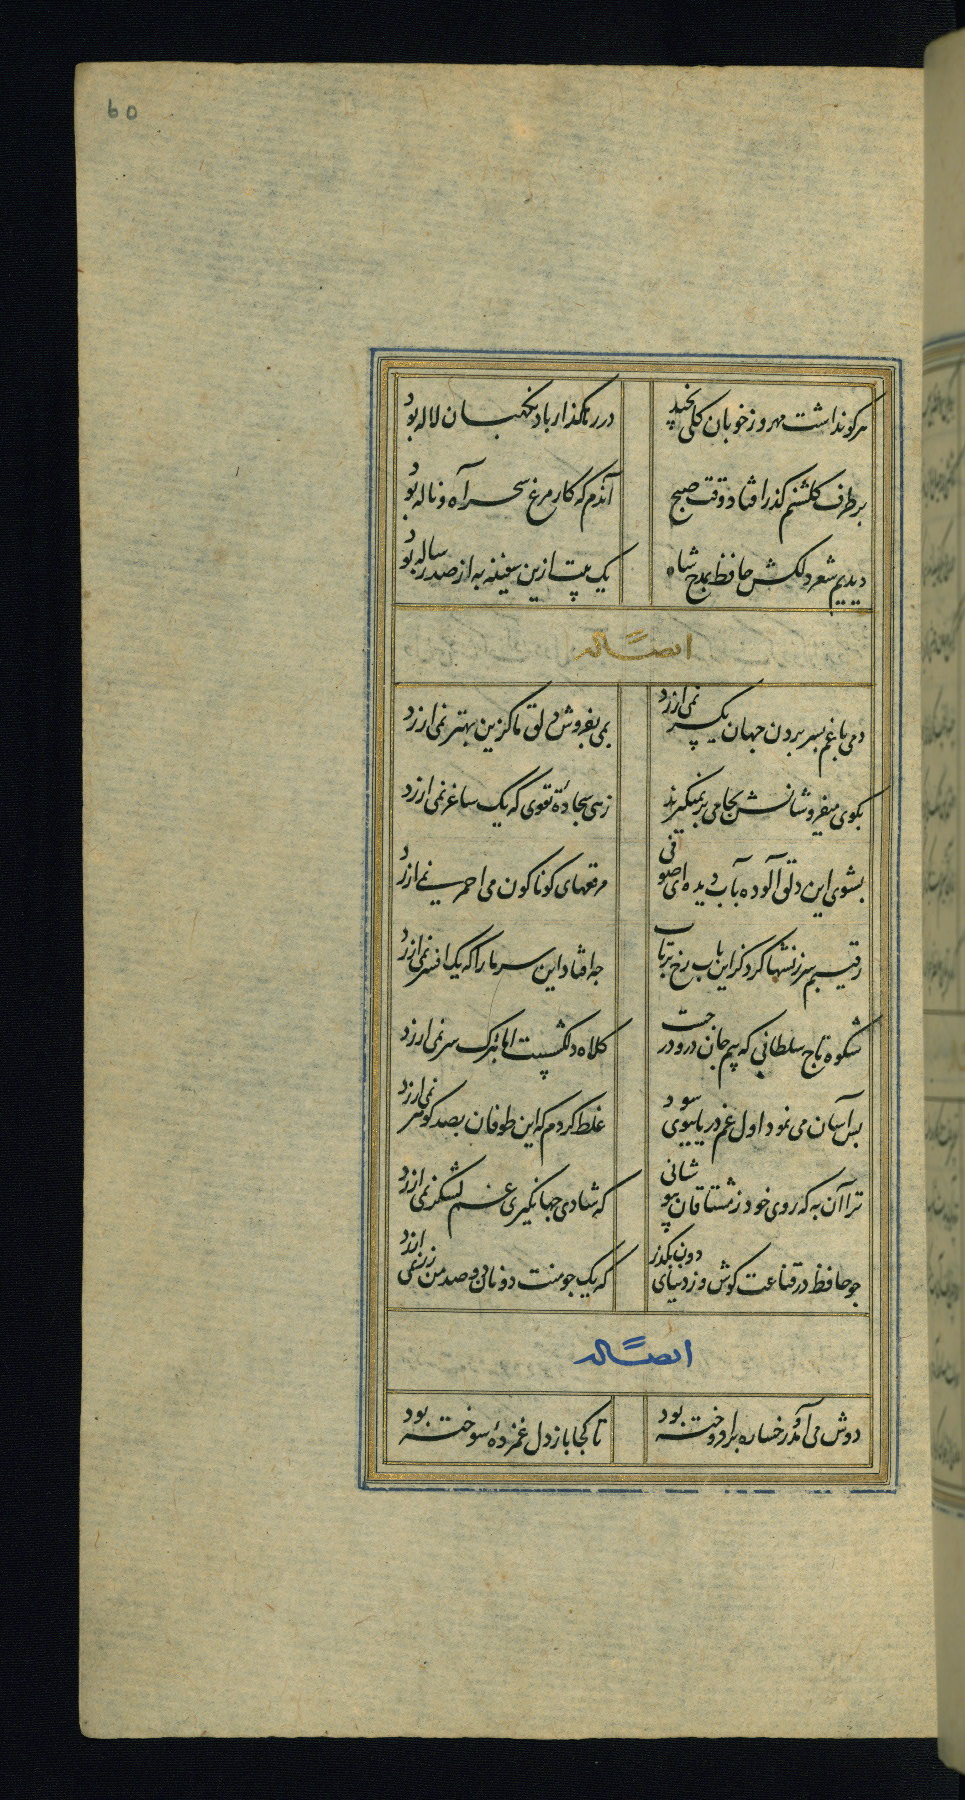 60
هرکو نداشت مهر و ز خوبان کلی نچید
در رهگذار باد نگهبان لاله بود
بر طرف گلشنم گذر افتاد وقت صبح
آندم که کار مرغ سحر آه و ناله بود
دیدیم شعر دلکش حافظ بمدح شاه
یک بیت ازین سفینه به از صد رساله بود
ایضاً له
دمی با غم بسر بردن جهان یکسر نمی ارزد
بمی بفروش دلق ما کزین بهتر نمی ارزد
بکوی میفروشانش بجامی بر نمیگیرند
زهی سجادۀ تقوی که یک ساغر نمی ارزد
بشوی این دلق آلوده بآب دیده ای صوفی
مرقعهای کوناکون می احمر نمی ارزد
رقیبم سرزنشها کرد کز این باب رخ برتاب
چه افتاد این سر ما را که یک افسر نمی ارزد
شکوه تاج سلطانی که بیم جان درو درجست
کلاه دلکشست اما بترک سر نمی ارزد
بس آسان می نمود اول غم دریا ببوی سود
غلط کردم که این طوفان بصد کوهر نمی ارزد
ترا آن به که روی خود ز مشتاقان بپوشانی
که شادی جهانگیری غم لشکر نمی ارزد
چو حافظ در قناعت کوش و ز دنیای دون بگذر
که یک جو منت دونان دو صد من زر نمی ارزد
ایضاً له
دوش می آمد و رخساره برافروخته بود
تا کجا باز دل غمزدۀ سوخته بود